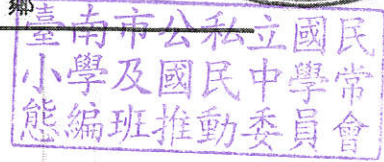 鄉
臺南市公私立國民
小學及國民中學常
態編班推動委員會